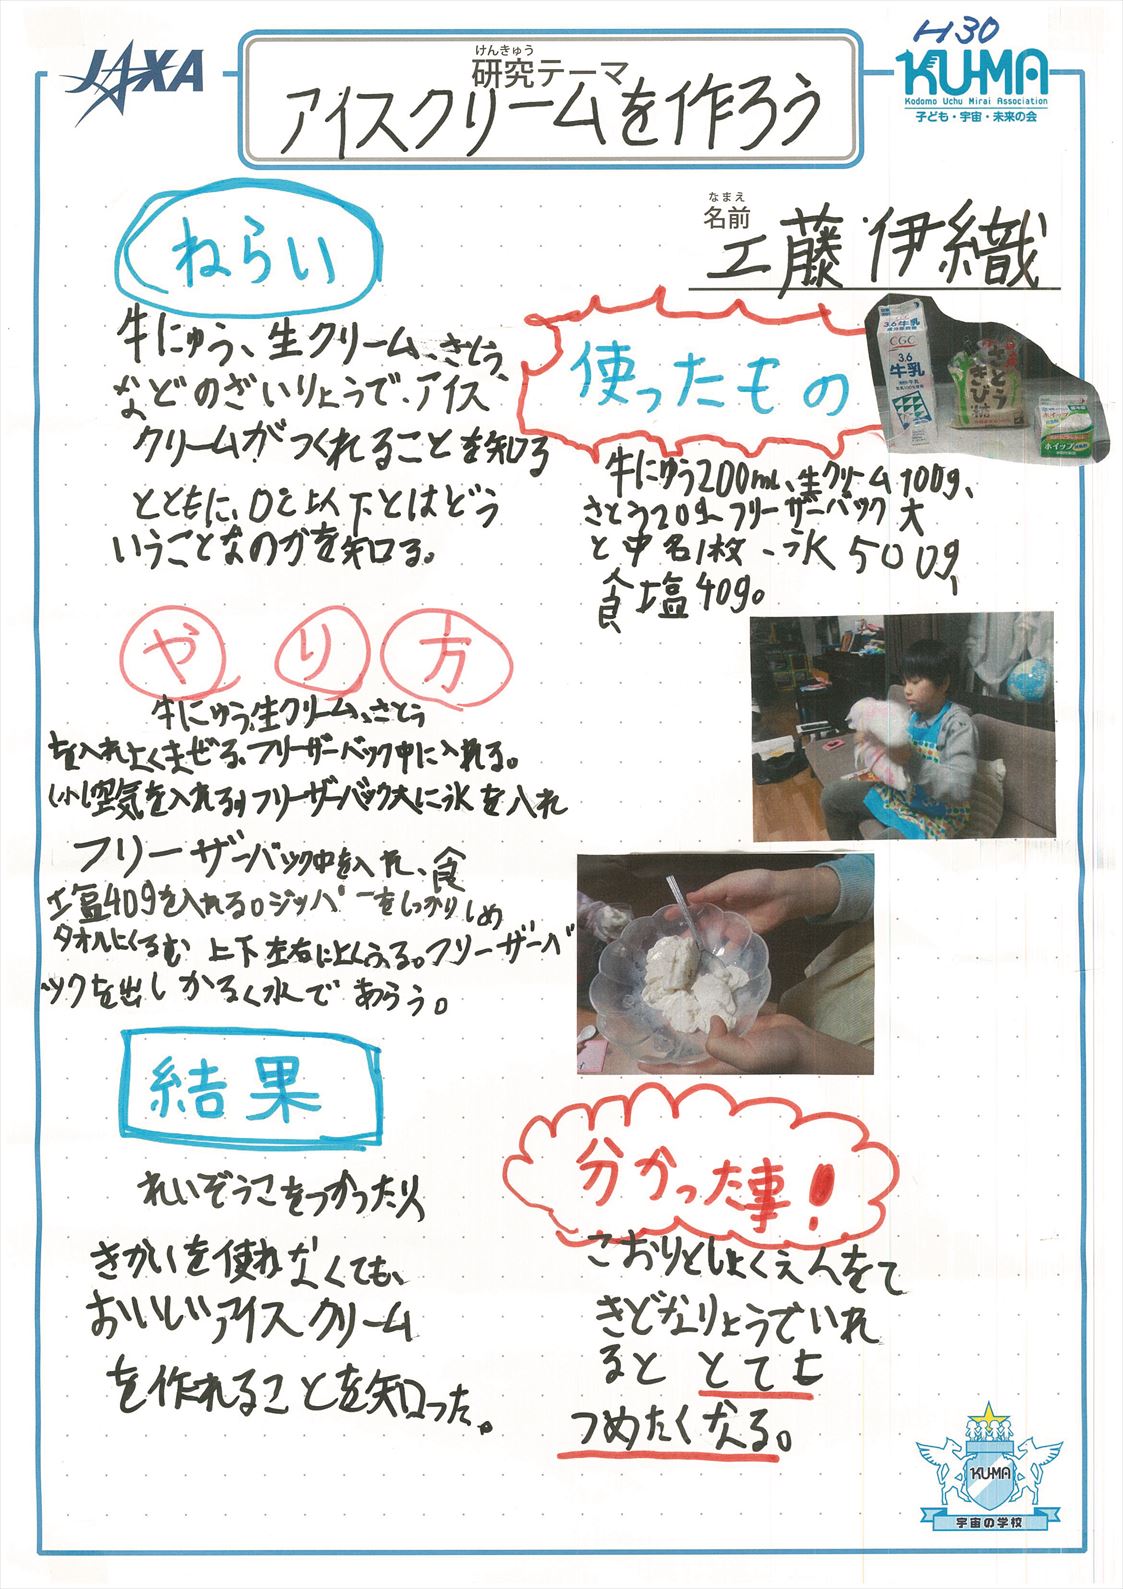 H30
JAXA
けんきゅう
研究テーマ
アイスクリームを作ろう
KU-MA
Kodomo Uchu Mirai Association
子ども・宇宙・未来の会
なまえ
名前
工藤 伊織
ねらい
牛にゅう、生クリーム、さとう、
などのざいりょうで、アイス
クリームがつくれることを知る
とともに、0℃以下とはどう
いうことなのかを知る。
使ったもの
3.6牛乳
CGC
3.6
牛乳
さとう
きび糖
ホイップ
牛にゅう200mL、生クリーム100g、
さとう20g、フリーザーバック大
と中各1枚、氷500g、
食塩40g。
やり方
牛にゅう、生クリーム、さとう
を入れよくまぜる、フリーザーバック中に入れる。
(少し空気を入れる)フリーザーバック大に氷を入れ
フリーザーバック中を入れ、食
塩40gを入れる。ジッパーをしっかりしめ
タオルにくるむ 上下左右によくふる。フリーザーバ
ックを出しかるく水であらう。
結果
れいぞうこをつかったり
きかいを使わなくても、
おいしいアイスクリーム
を作れることを知った。
分かった事!
こおりとしょくえんをて
きどなりょうでいれ
ると とても
つめたくなる。
KU-MA
宇宙の学校